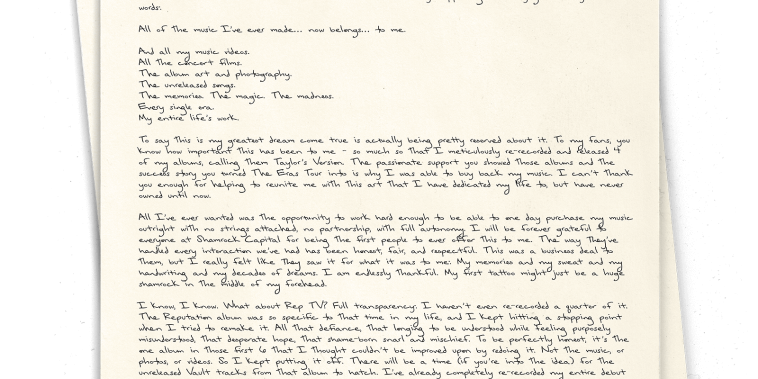 words.
All of the music I've ever made... now belongs... to me.
And all my music videos.
All the concert films.
The album art and photography.
The unreleased songs.
The memories. The magic. The madness.
Every single era.
My entire life's work.
To say this is my greatest dream come true is actually being pretty reserved about it. To my fans, you
know how important this has been to me - so much so that I meticulously re-recorded and released 4
of my albums, calling them Taylor's Version. The passionate support you showed those albums and the
success story you turned The Eras Tour into is why I was able to buy back my music. I can't thank
you enough for helping to reunite me with this art that I have dedicated my life to, but have never
owned until now.
All I've ever wanted was the opportunity to work hard enough to be able to one day purchase my music
outright with no strings attached, no partnership, with full autonomy. I will be forever grateful to
everyone at Shamrock Capital for being the first people to ever offer this to me. The way they've
handled every interaction we've had has been honest, fair, and respectful. This was a business deal to
them, but I really felt like they saw it for what it was to me: My memories and my sweat and my
handwriting and my decades of dreams. I am endlessly thankful. My first tattoo might just be a huge
shamrock in the middle of my forehead.
I know, I know. What about Rep TV? Full transparency: I haven't even re-recorded a quarter of it.
The Reputation album was so specific to that time in my life, and I kept hitting a stopping point
when I tried to remake it. All that defiance, that longing to be understood while feeling purposely
misunderstood, that desperate hope, that shame-born snarl and mischief. To be perfectly honest, it's the
one album in those first 6 that I thought couldn't be improved upon by redoing it. Not the music, or
photos, or videos. So I kept putting it off. There will be a time (if you're into the idea) for the
unreleased Vault tracks from that album to hatch. I've already completely re-recorded my entire debut